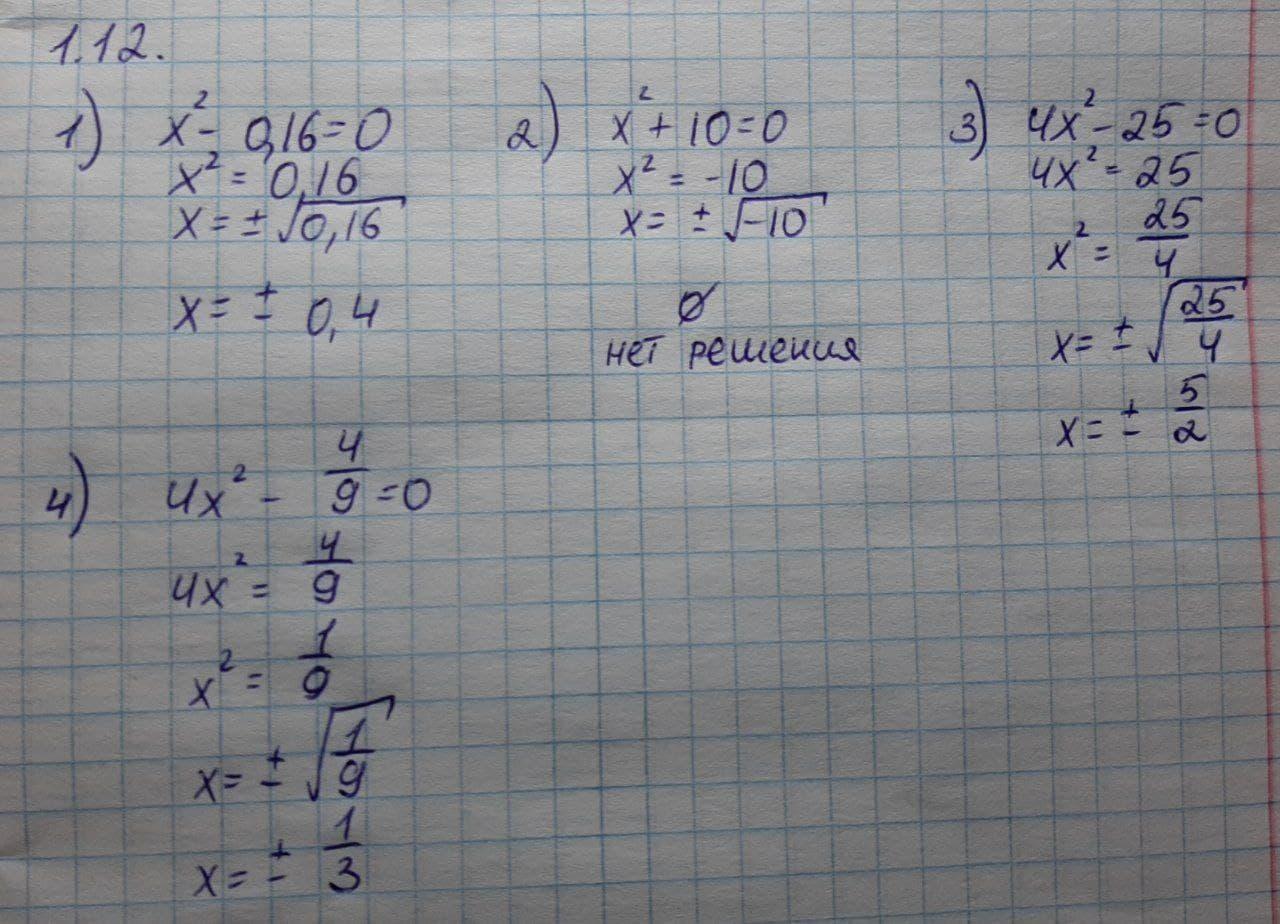 1.12.
1) x² - 0,16 = 0
x² = 0,16
x = ± √0,16
x = ± 0,4
2) x² + 10 = 0
x² = -10
x = ± √-10
∅
нет решения
3) 4x² - 25 = 0
4x² = 25
x² = 25/4
x = ± √25/4
x = ± 5/2
4) 4x² - 4/9 = 0
4x² = 4/9
x² = 1/9
x = ± √1/9
x = ± 1/3